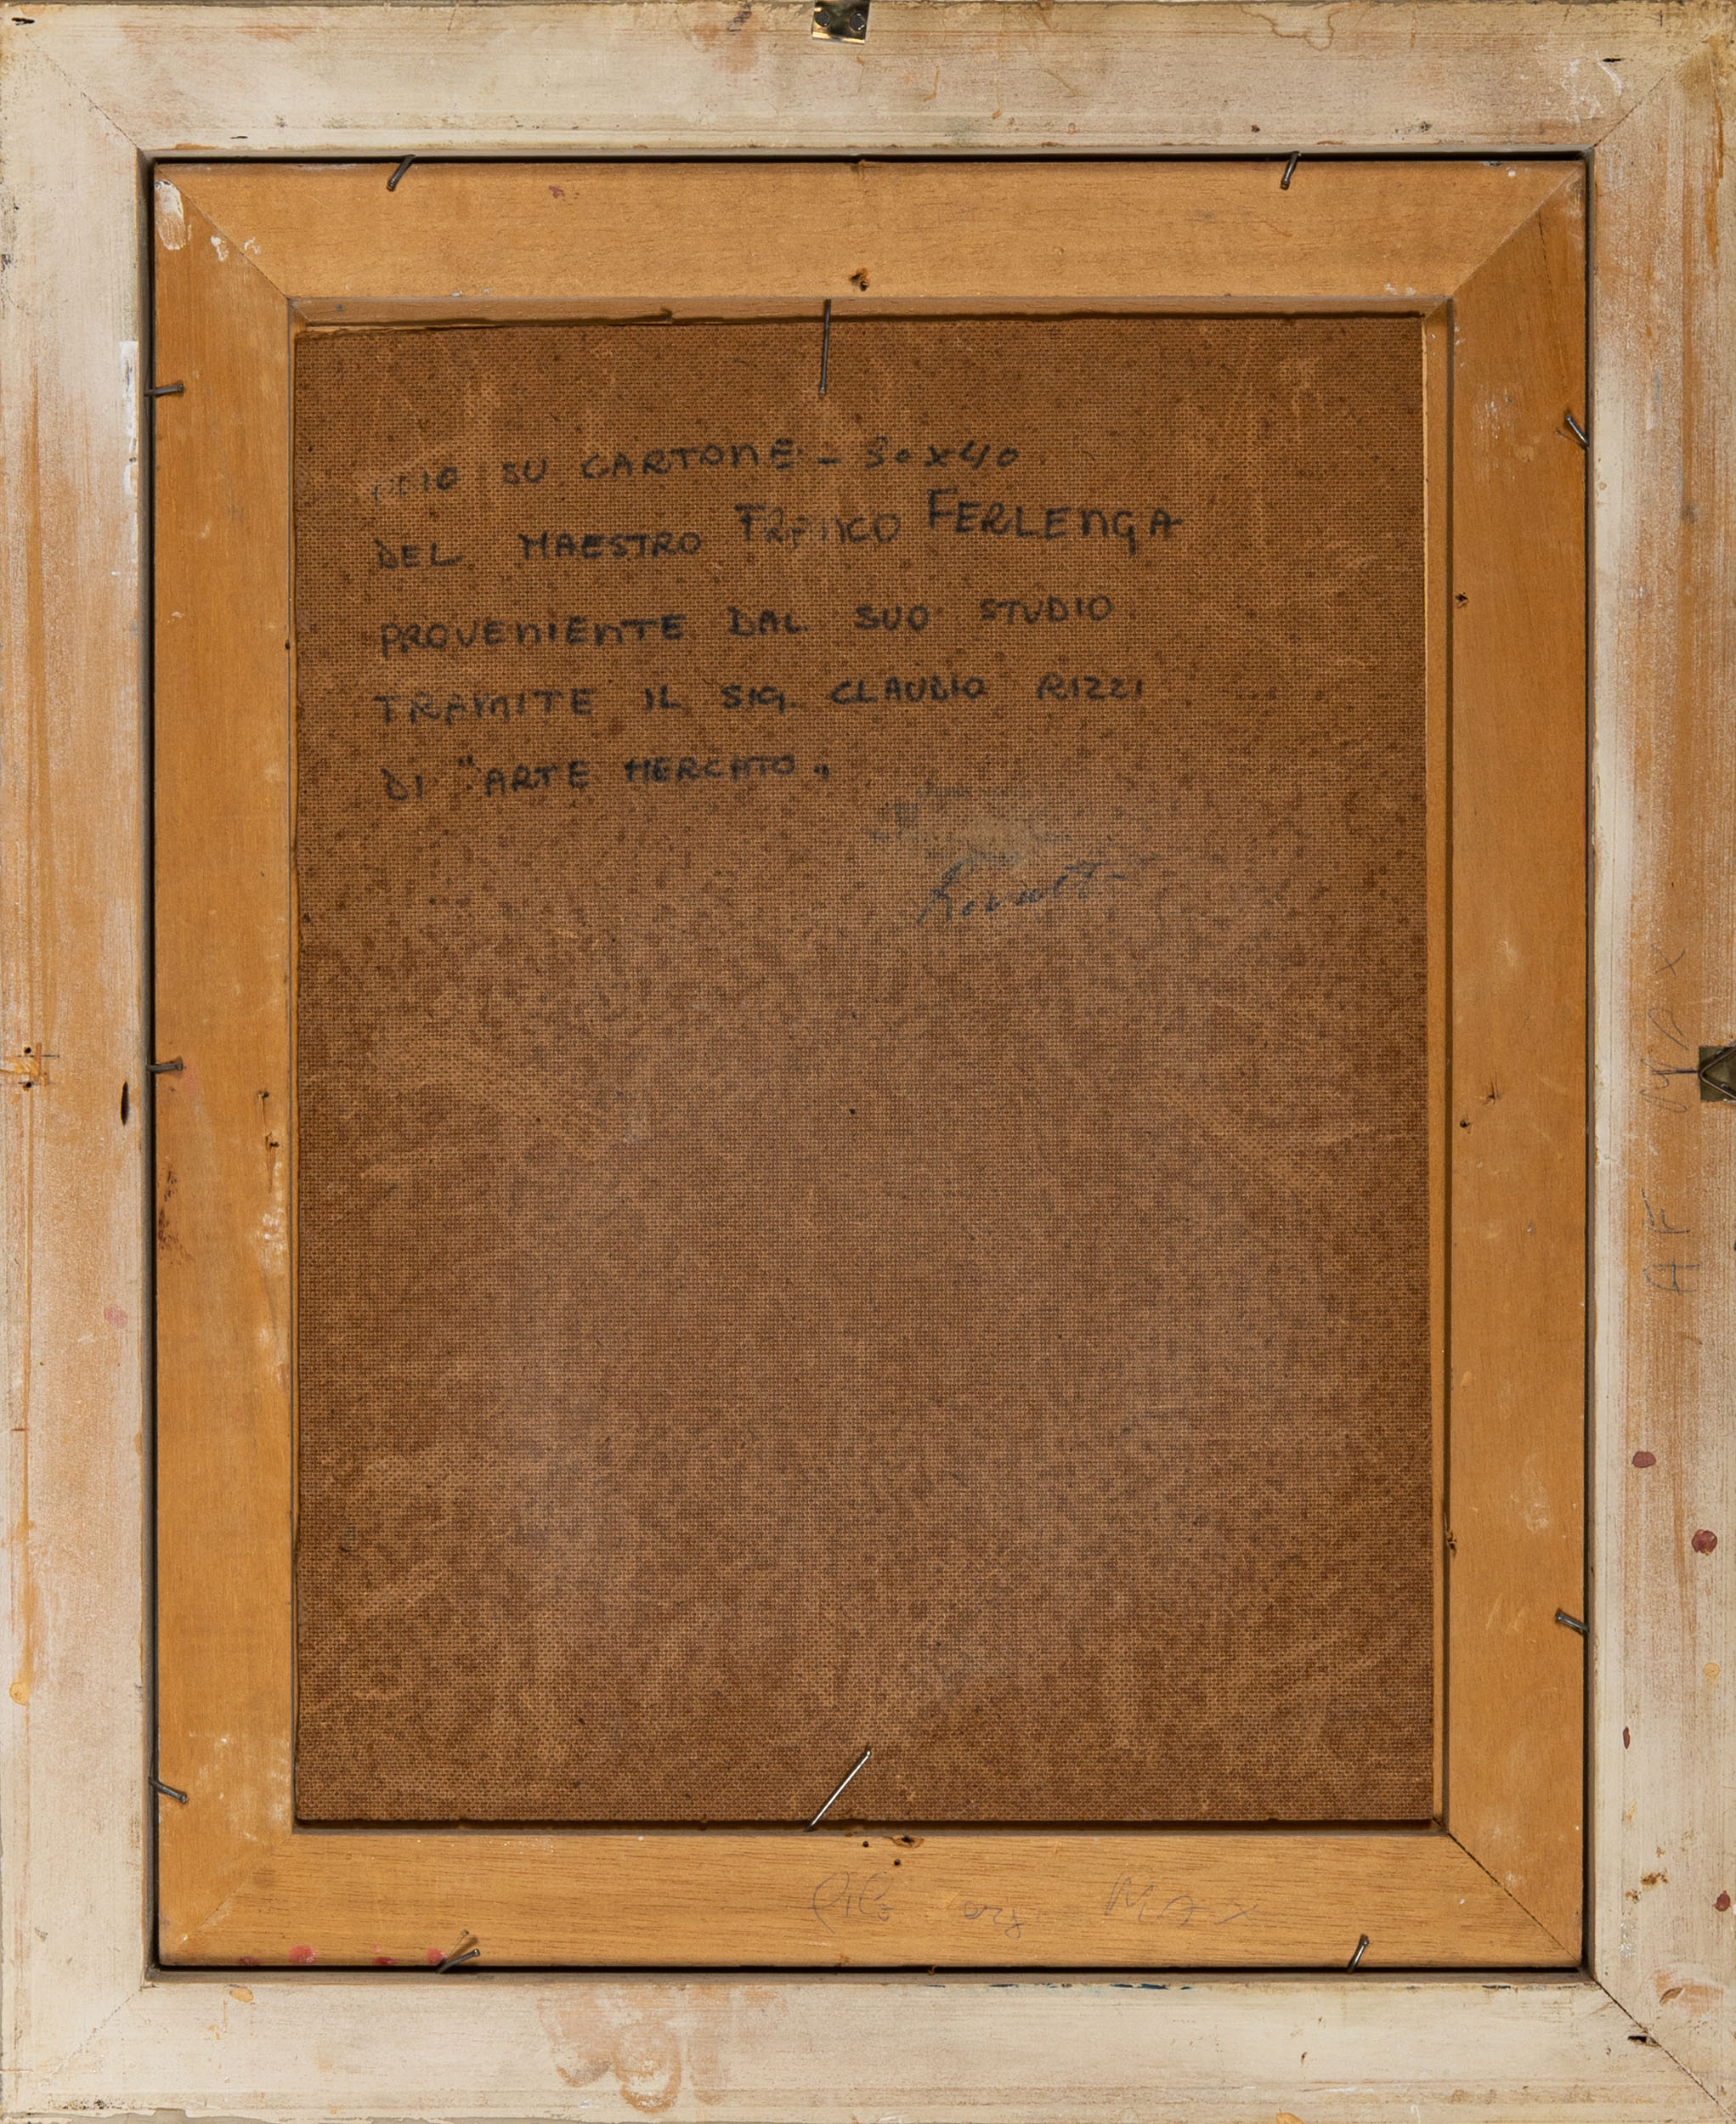 OLIO SU CARTONE - 30x40
DEL MAESTRO FRANCO FERLENGA
PROVENIENTE DAL SUO STUDIO
TRAMITE IL SIG. CLAUDIO RIZZI
DI "ARTE MERCATO"
AF
MAX